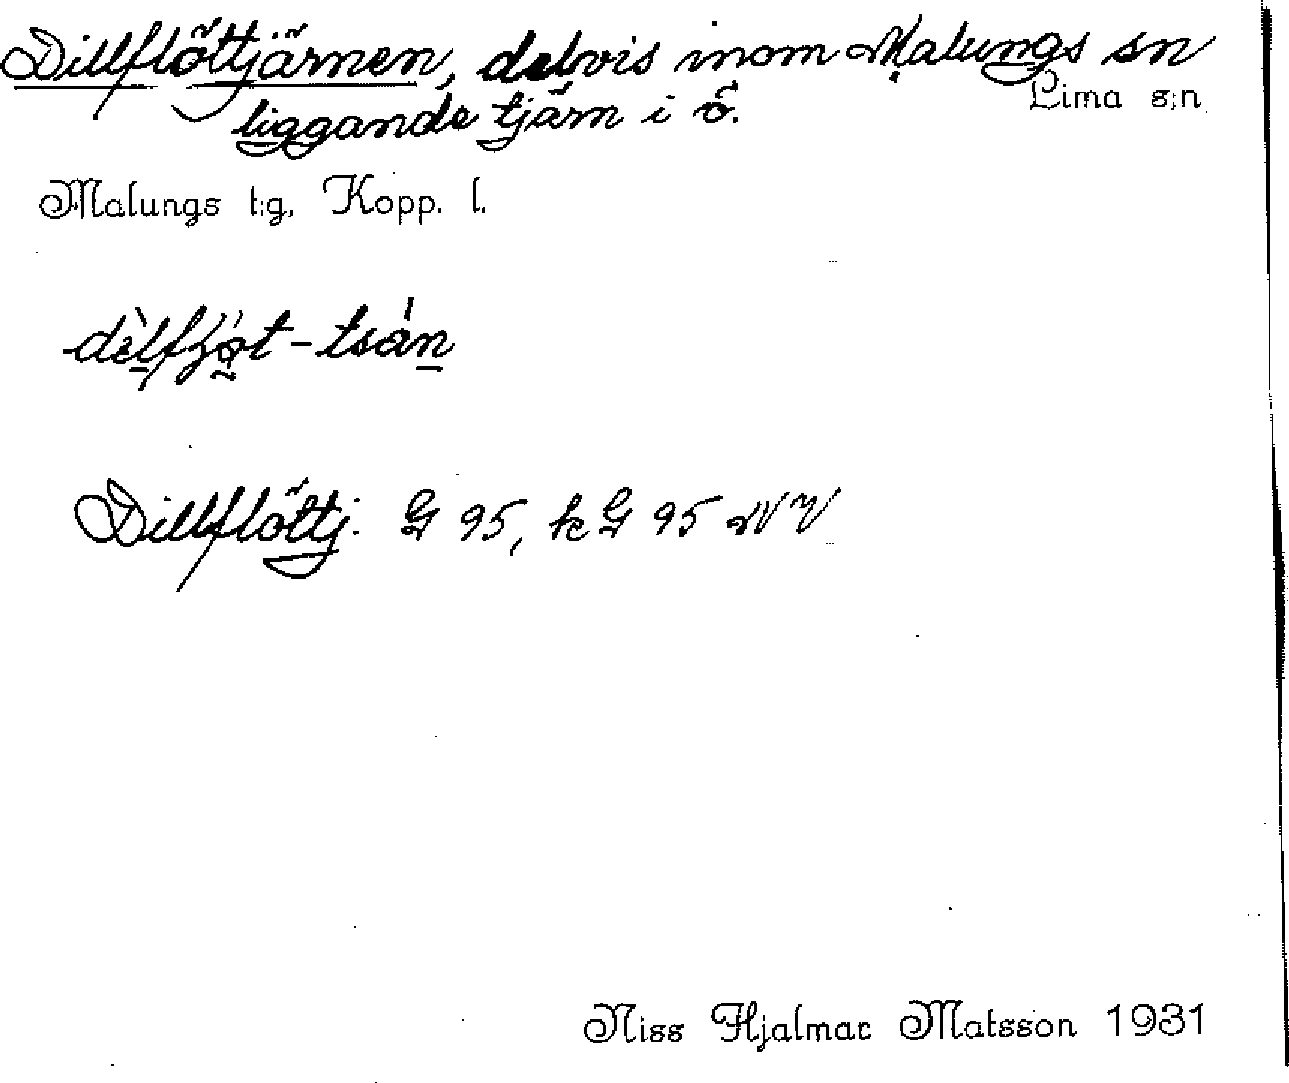 Dillflöttjärnen, delvis inom Malungs sn
Lima s:n
liggande tjärn i ö.
Malungs t:g, Kopp. l.
dèlfjọ̀t-tsán
Dillflöttj. G 95, k G 95 NV
Niss Hjalmar Matsson 1931